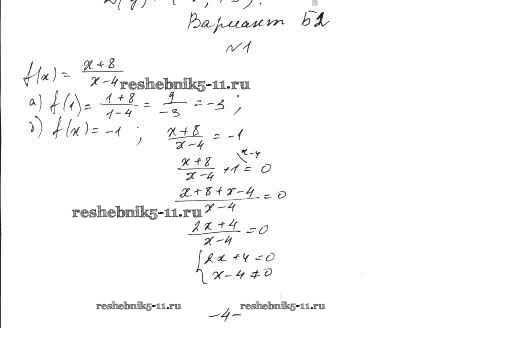 Вариант Б2
№1
f(x) = \frac{x+8}{x-4}
reshebnik5-11.ru
а) f(1) = \frac{1+8}{1-4} = \frac{9}{-3} = -3 ;
б) f(x) = -1 ; \frac{x+8}{x-4} = -1
\frac{x+8}{x-4} + 1^{\x-4} = 0
\frac{x+8+x-4}{x-4} = 0
reshebnik5-11.ru
\frac{2x+4}{x-4} = 0
{ 2x+4=0
x-4≠0
reshebnik5-11.ru reshebnik5-11.ru
-4-